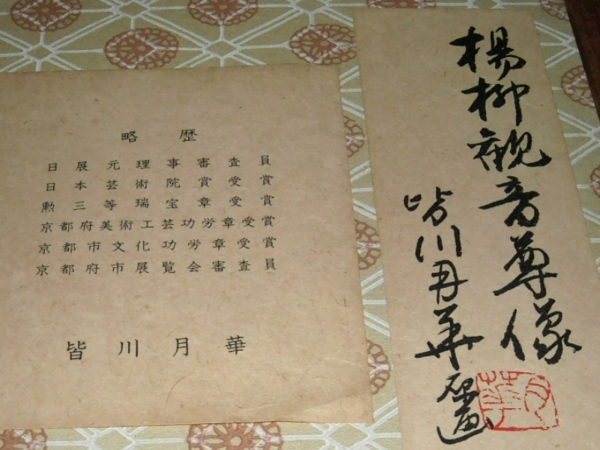 楊柳観音尊像
皆川月華画
月華
略歴
日展元理事審査員
日本芸術院賞受賞
勲三等瑞宝章受賞
京都府美術工芸功労章受賞
京都市文化功労章受賞
京都府市展覧会審査員
皆川月華